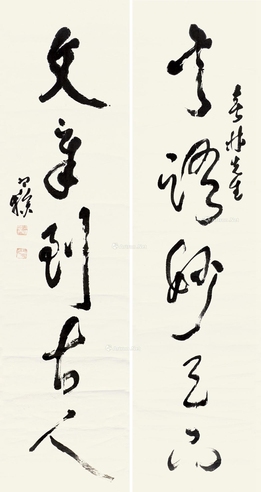 春林先生
言語妙天下
文章到古人